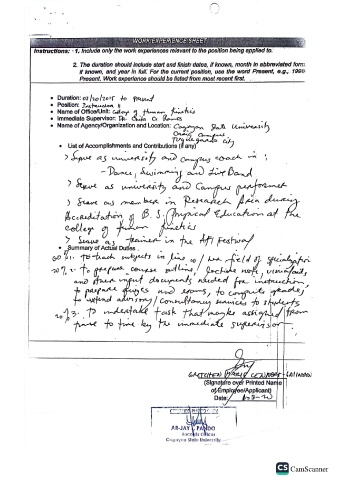 WORK EXPERIENCE SHEET
Instructions: 1. Include only the work experiences relevant to the position being applied to.
2. The duration should include start and finish dates, if known, month in abbreviated form, if known, and year in full. For the current position, use the word Present, e.g., 1998-
Present. Work experience should be listed from most recent first.
• Duration: to present
• Position: Instructor
• Name of Office/Unit: College of Human Kinetics
• Immediate Supervisor: Dr.
• Name of Agency/Organization and Location: Cagayan State University
Campus
Tuguegarao City
• List of Accomplishments and Contributions (if any)
> Serve as university and campus coach in :
- Dance, Swimming and
> Serve as university and Campus performer
> Serve as member in Research Area during
Accreditation of B.S. Physical Education at the
college of Human Kinetics
> Serve as trainer in the Festival
• Summary of Actual Duties
1. To teach subjects in line w/ field of specialization
2. To prepare course outline, lecture note, visual aids,
and other input documents needed for instruction,
to prepare quizzes and exams, to compute grades,
to extend advisory/consultancy services to students
3. To undertake task that maybe assigned from
time to time by the immediate supervisor.
GRETCHEN
(Signature over Printed Name
of Employee/Applicant)
Date:
AR-JAY PANDO
Records Officer
Cagayan State University
CS CamScanner